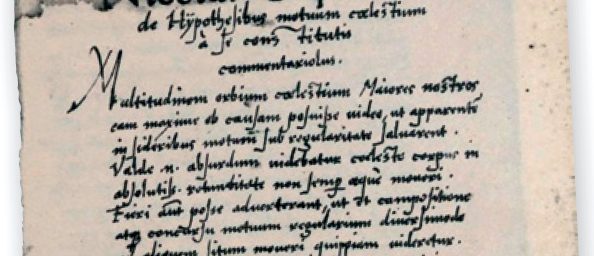 de Hypothesibus motuum cœlestium
à se constitutis
commentariolus.
Multitudinem orbium cœlestium Maiores nostros
eam maxime ob causam posuisse video, ut apparentẽ
in sideribus motum sub regularitate salvarent.
Valde .n. absurdum videbatur cœleste corpus in
absolutiss. rotunditate non semp æque moveri.
Fieri aũt posse adverterant, ut et compositione
atq concursu motuum regularium diversimode
aliquem situm moveri quippiam videretur.